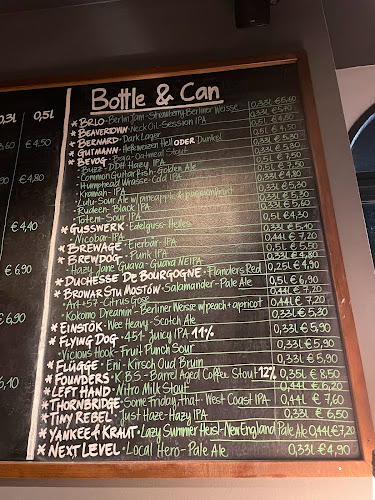 Bottle & Can
0,3L 0,5L
€6,50 €4,50
€4,80
€4,40
€6,90
€6,90
6,10
* BRLO • Berlin Jam - Strawberry Berliner Weisse 0,33L €5,60
* BEAVERTOWN • Neck Oil - Session IPA 0,33L
* BERNARD • Dark Lager 0,5L €4,50
* GUTMANN • Hefeweizen Hell ODER Dunkel
* BEVOG • Baja - Oatmeal Stout
• Buzz - DDH Hazy IPA
• Common Guitar Fish - Golden Ale
• Humphead Wrasse - Cold IPA
• Kramah - IPA
• Lulu - Sour Ale w/ pineapple & passionfruit
• Rudeen - Black IPA 0,33L €5,30
• Toten - Sour IPA
* GUSSWERK • Edelguss - Helles 0,5L €4,30
• Nicobar - IPA 0,33L €5,40
* BREWAGE • Eierbär - IPA 0,44L €7,20
* BREWDOG • Punk IPA 0,5L €5,50
• Hazy Jane Guava - Guava NEIPA 0,33L €4,80
* DUCHESSE DE BOURGOGNE • Flanders Red 0,25L €4,90
* BROWAR STU MOSTÓW • Salamander - Pale Ale 0,5L €6,90
• Art+57 - Citrus Gose 0,44L €7,20
• Kokomo Dreamin - Berliner Weisse w/ peach + apricot 0,44L €7,20
* EINSTÖK • Wee Heavy - Scotch Ale 0,33L €5,90
* FLYING DOG • 451 - Juicy IPA 11% 0,33L €5,90
• Vicious Hook - Fruit Punch Sour 0,33L €5,90
* FLÜGGE • Eni - Kirsch Oud Bruin 0,33L €5,90
* FOUNDERS • K.B.S - Barrel Aged Coffee Stout 12% 0,35L €8,50
* LEFT HAND • Nitro Milk Stout 0,44L €6,20
* THORNBRIDGE • Some Friday, that - West Coast IPA 0,44L €7,60
* TINY REBEL • Just Haze - Hazy IPA 0,33L €6,50
* YANKEE & KRAUT • Lazy Summer Heist - New England Pale Ale 0,44L €7,20
* NEXT LEVEL • Local Hero - Pale Ale 0,33L €4,90